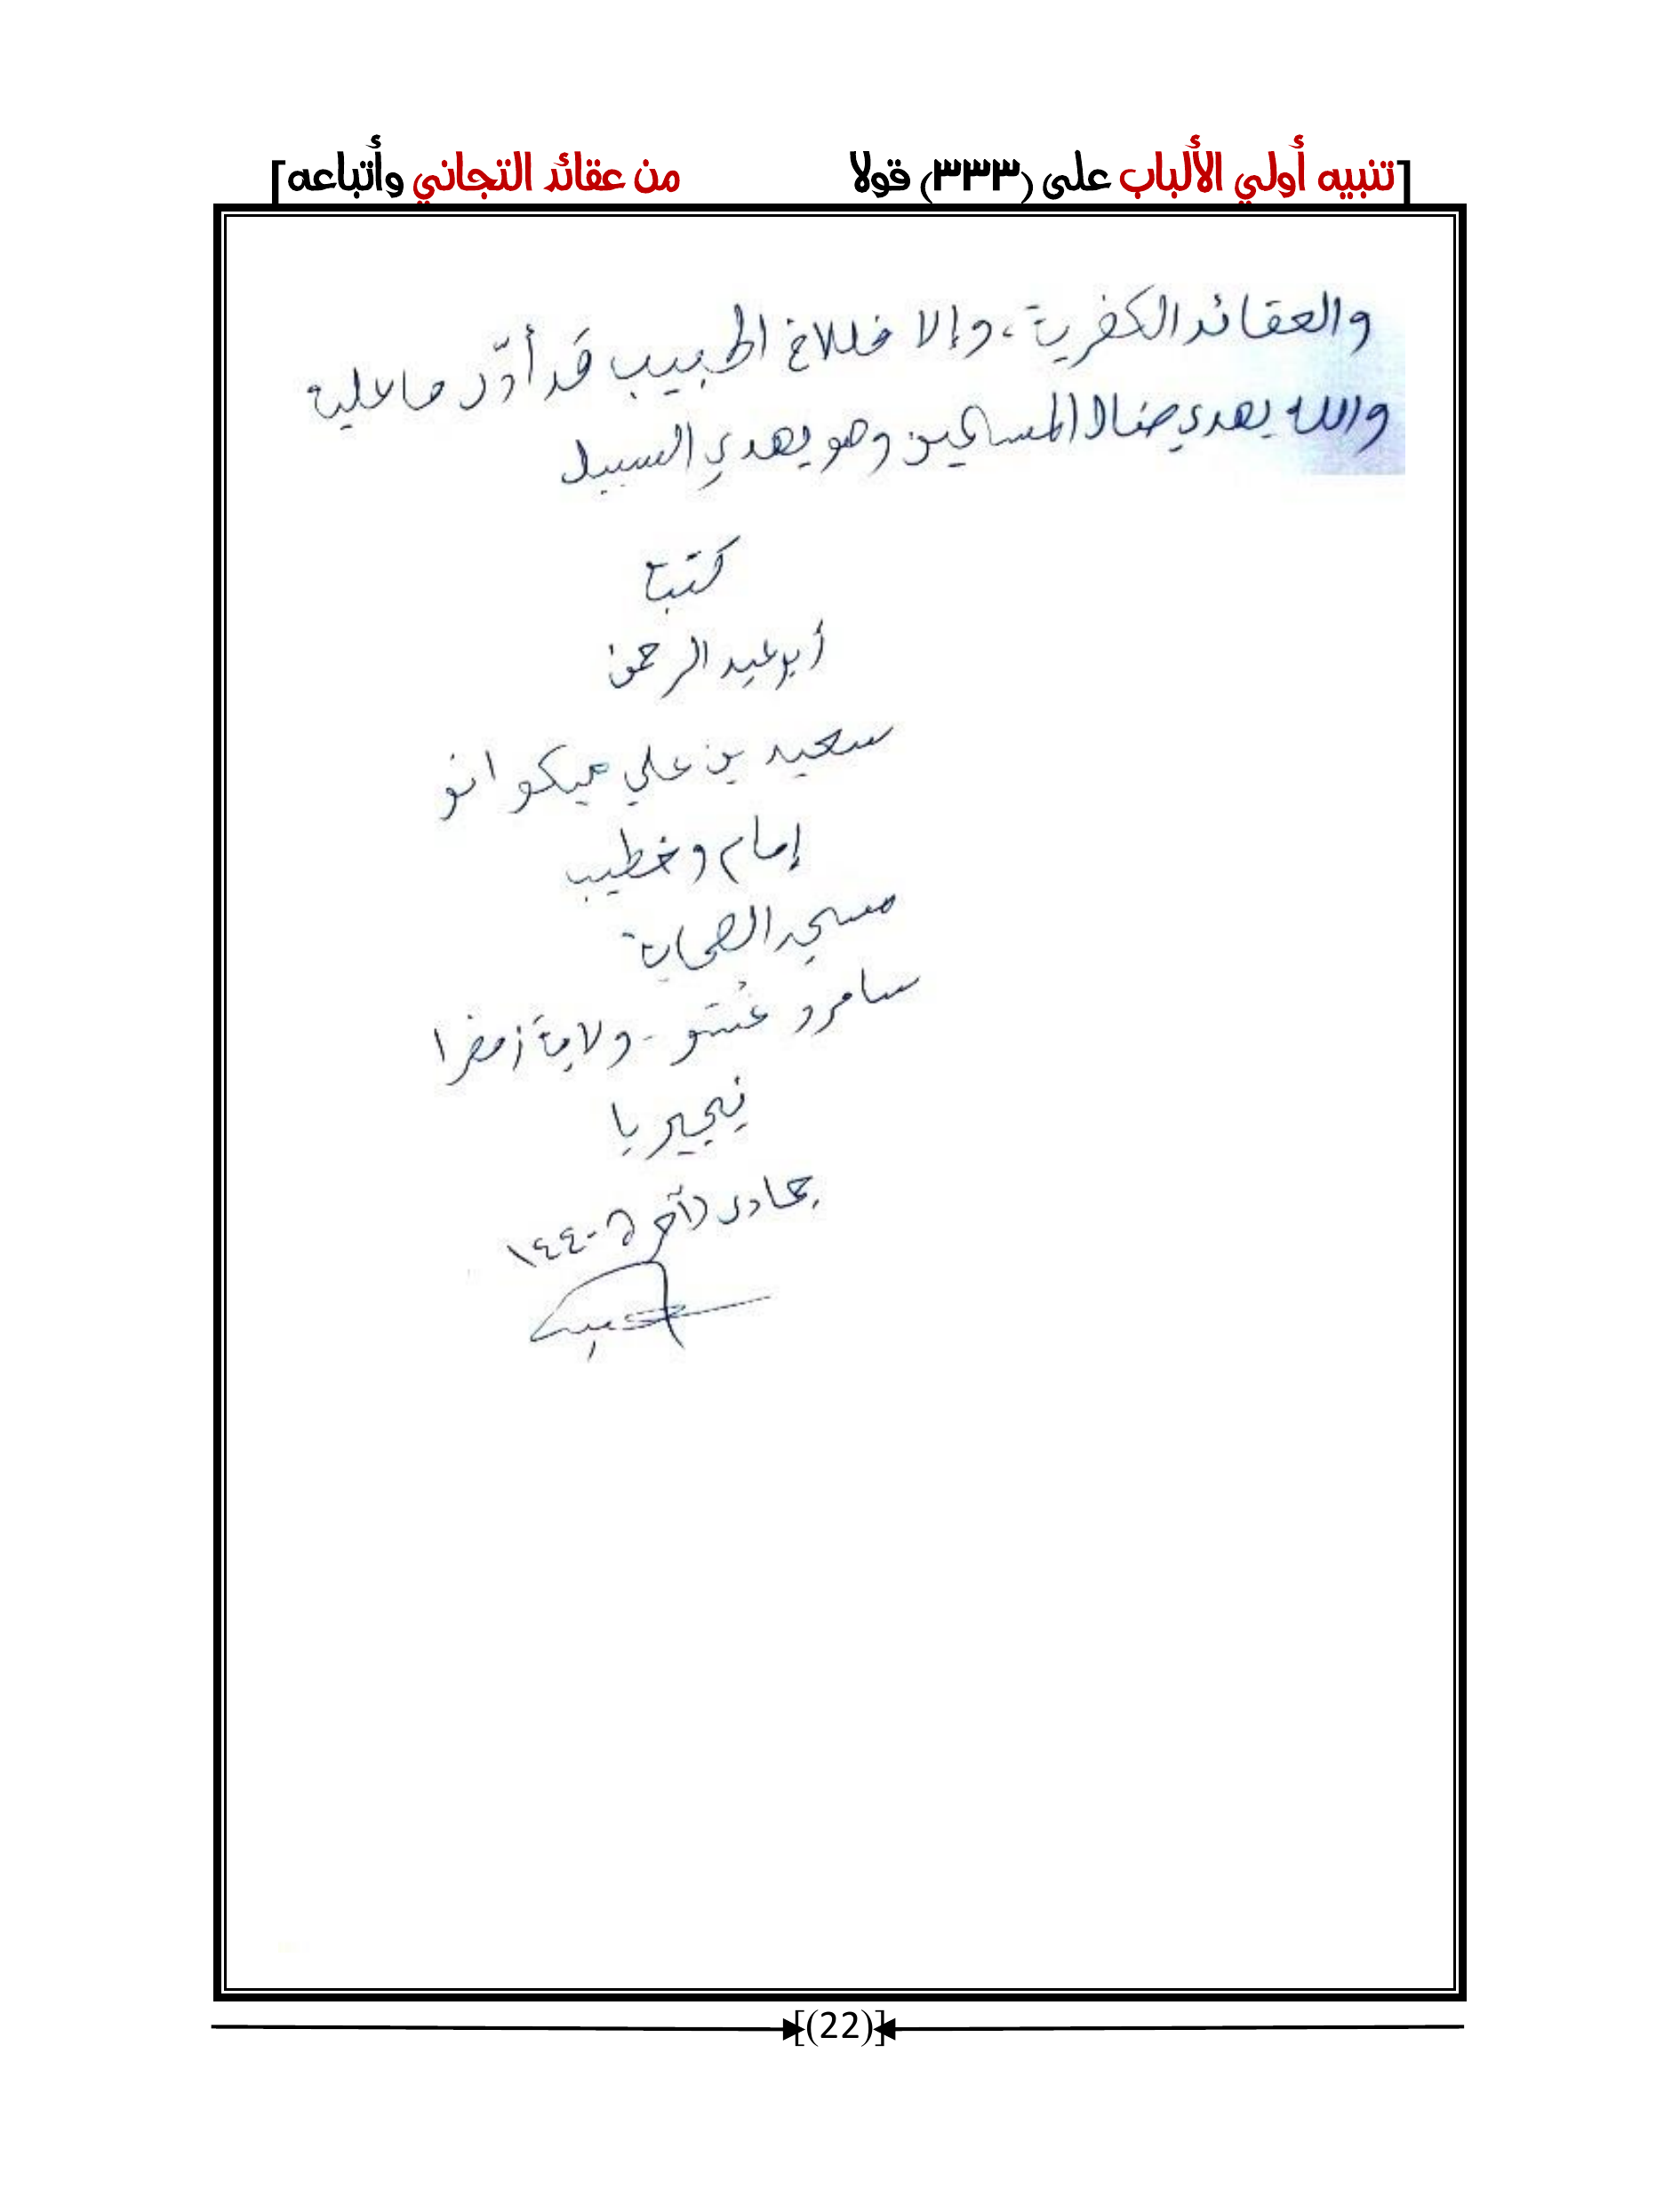 [تنبيه أولي الألباب على (٣٣٣) قولا من عقائد التجاني وأتباعه]
والعقائد الكفرية، وإلا فللاخ الحبيب قد أدّى ما عليه
والله يهدي ضال المسلمين وهو يهدي السبيل
كتبه
أبو عبد الرحمن
سعيد بن علي ميكوانو
إمام وخطيب
مسجد الصحابة
سامرو غسو - ولاية زمفرا
نيجيريا
جمادى الآخر ١٤٤٠هـ
[(22)]